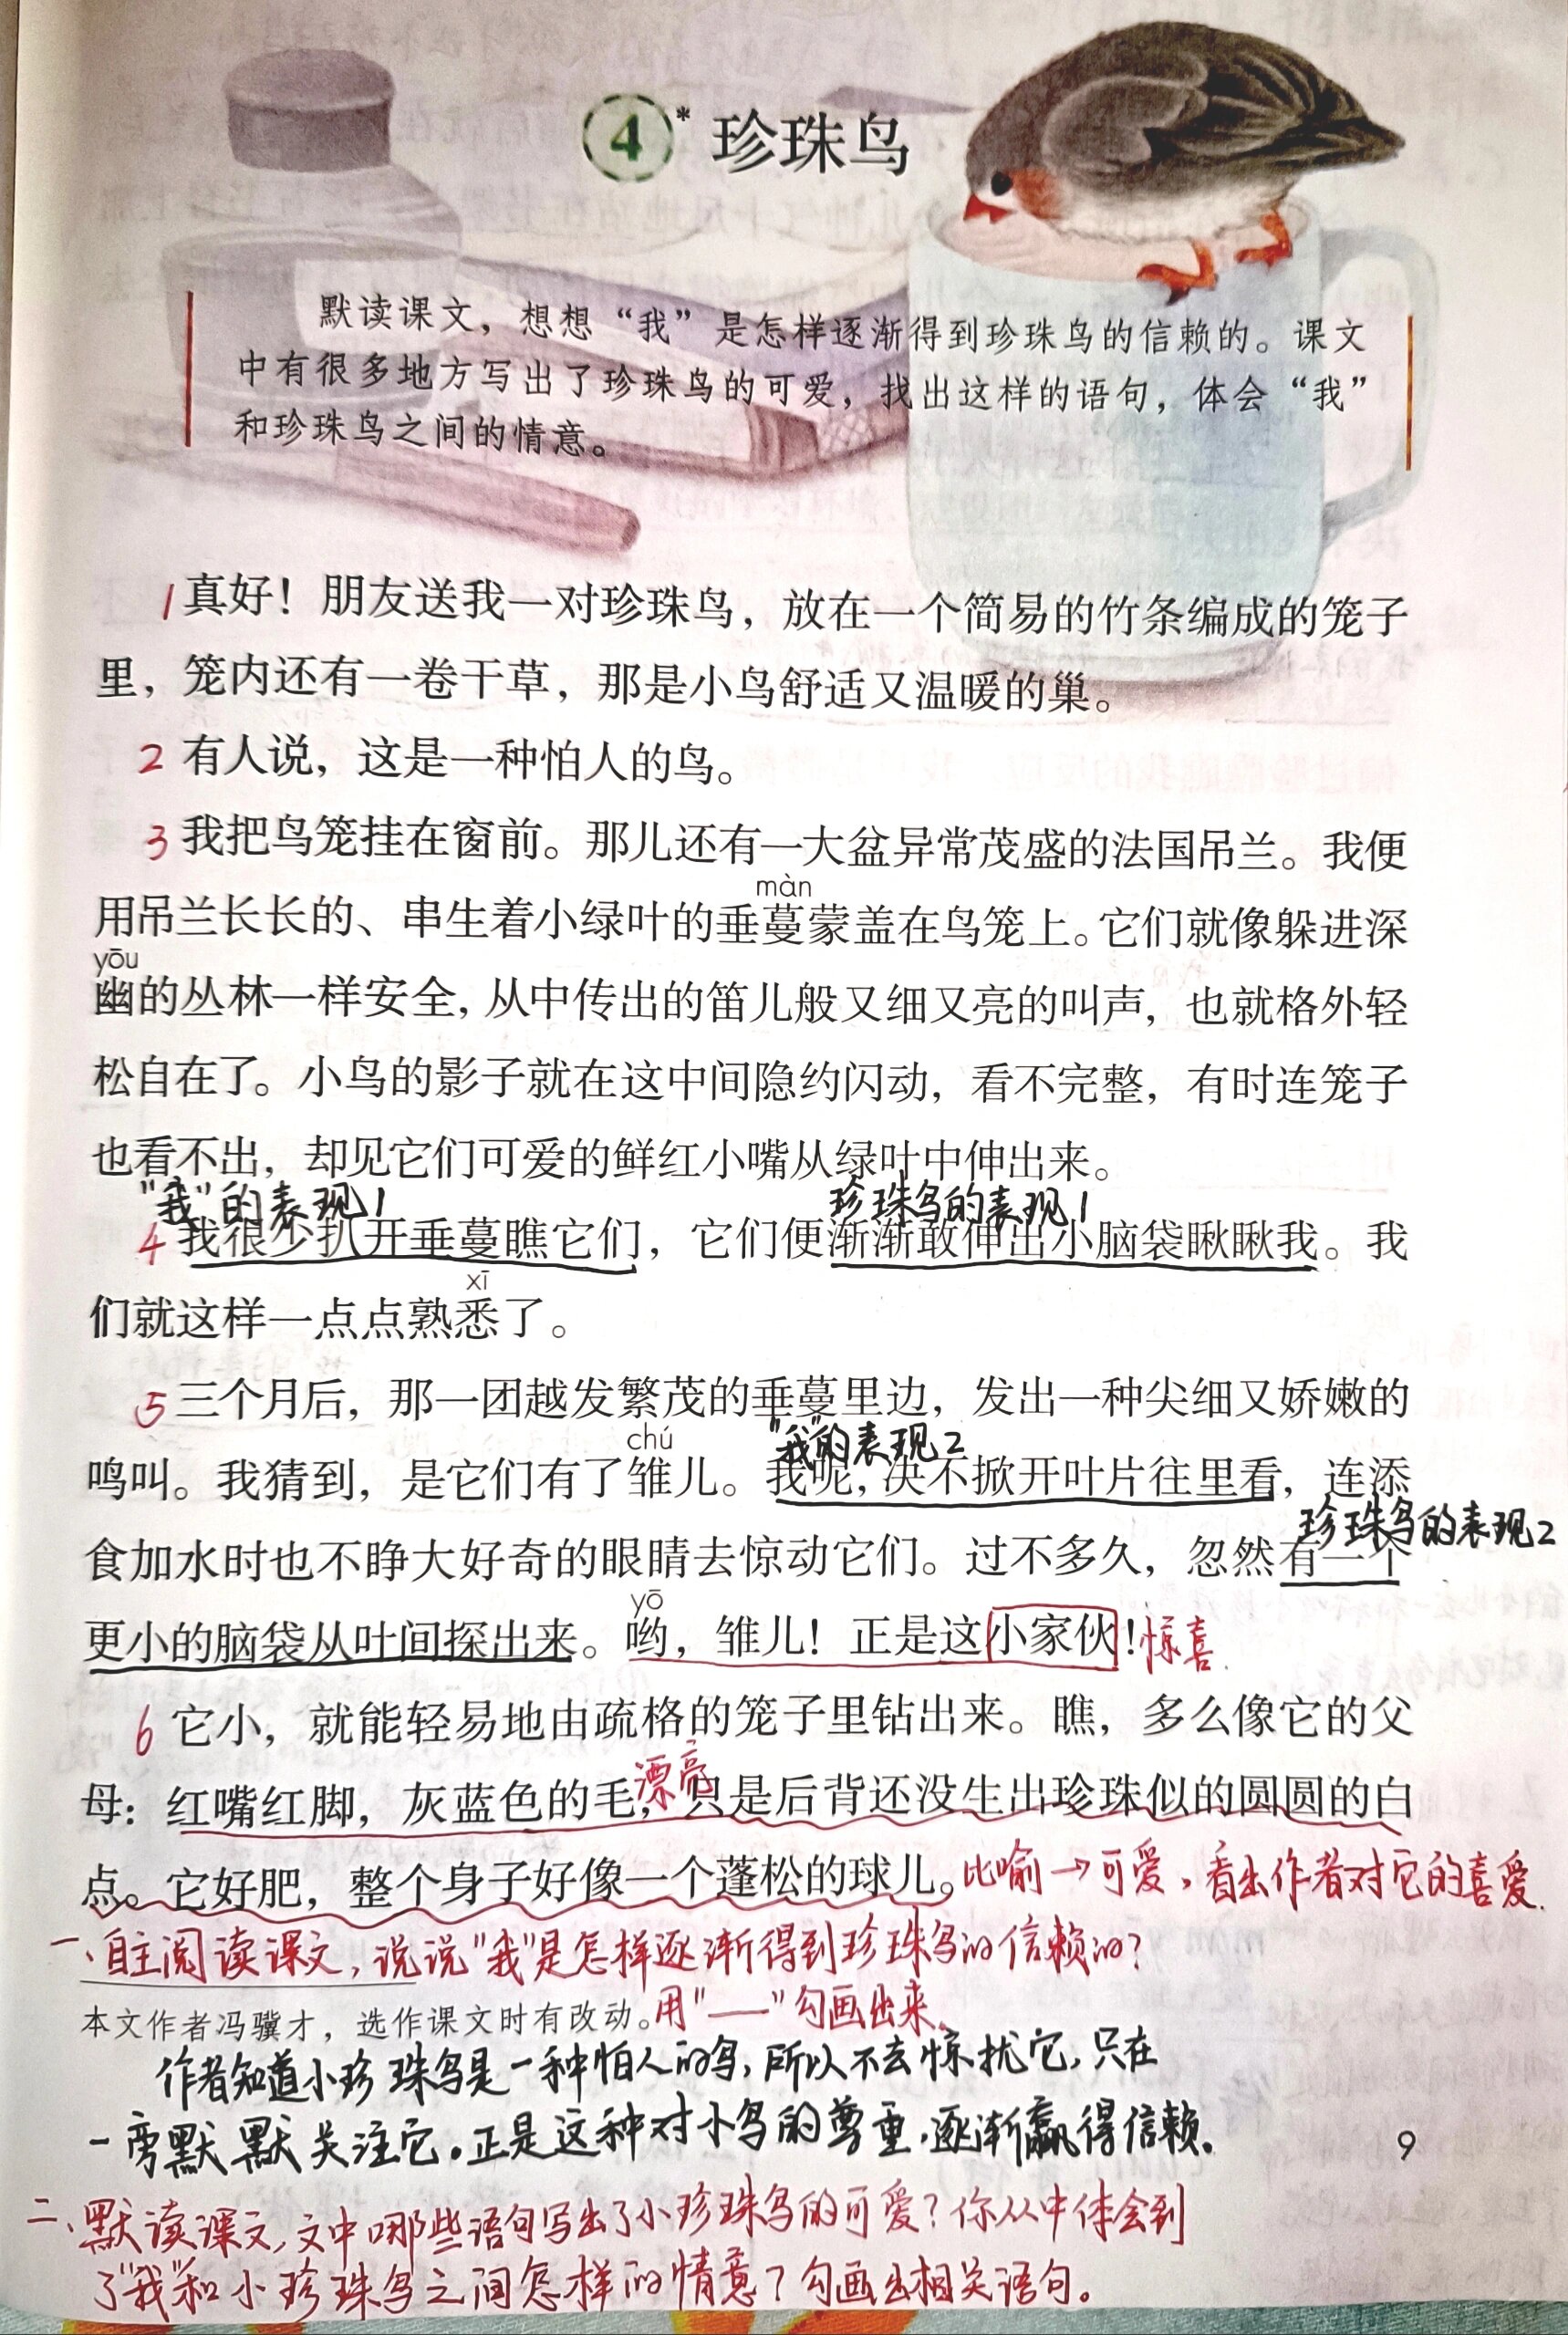 4* 珍珠鸟
默读课文，想想“我”是怎样逐渐得到珍珠鸟的信赖的。课文
中有很多地方写出了珍珠鸟的可爱，找出这样的语句，体会“我”
和珍珠鸟之间的情意。
1 真好！朋友送我一对珍珠鸟，放在一个简易的竹条编成的笼子
里，笼内还有一卷干草，那是小鸟舒适又温暖的巢。
2 有人说，这是一种怕人的鸟。
3 我把鸟笼挂在窗前。那儿还有一大盆异常茂盛的法国吊兰。我便
màn
用吊兰长长的、串生着小绿叶的垂蔓蒙盖在鸟笼上。它们就像躲进深
yōu
幽的丛林一样安全，从中传出的笛儿般又细又亮的叫声，也就格外轻
松自在了。小鸟的影子就在这中间隐约闪动，看不完整，有时连笼子
也看不出，却见它们可爱的鲜红小嘴从绿叶中伸出来。
“我”的表现1 珍珠鸟的表现1
4 我很少扒开垂蔓瞧它们，它们便渐渐敢伸出小脑袋瞅瞅我。我
xī
们就这样一点点熟悉了。
5 三个月后，那一团越发繁茂的垂蔓里边，发出一种尖细又娇嫩的
chú “我”的表现2
鸣叫。我猜到，是它们有了雏儿。我呢，决不掀开叶片往里看，连添
珍珠鸟的表现2
食加水时也不睁大好奇的眼睛去惊动它们。过不多久，忽然有一个
yō
更小的脑袋从叶间探出来。哟，雏儿！正是这小家伙！惊喜.
6 它小，就能轻易地由疏格的笼子里钻出来。瞧，多么像它的父
漂亮
母：红嘴红脚，灰蓝色的毛，只是后背还没生出珍珠似的圆圆的白
点。它好肥，整个身子好像一个蓬松的球儿。比喻→可爱，看出作者对它的喜爱.
一、自主阅读课文，说说“我”是怎样逐渐得到珍珠鸟的信赖的？
本文作者冯骥才，选作课文时有改动。用“——”勾画出来.
作者知道小珍珠鸟是一种怕人的鸟，所以不去惊扰它，只在
一旁默默关注它。正是这种对小鸟的尊重，逐渐赢得信赖。
9
二、默读课文，文中哪些语句写出了小珍珠鸟的可爱？你从中体会到
了“我”和小珍珠鸟之间怎样的情意？勾画出相关语句。